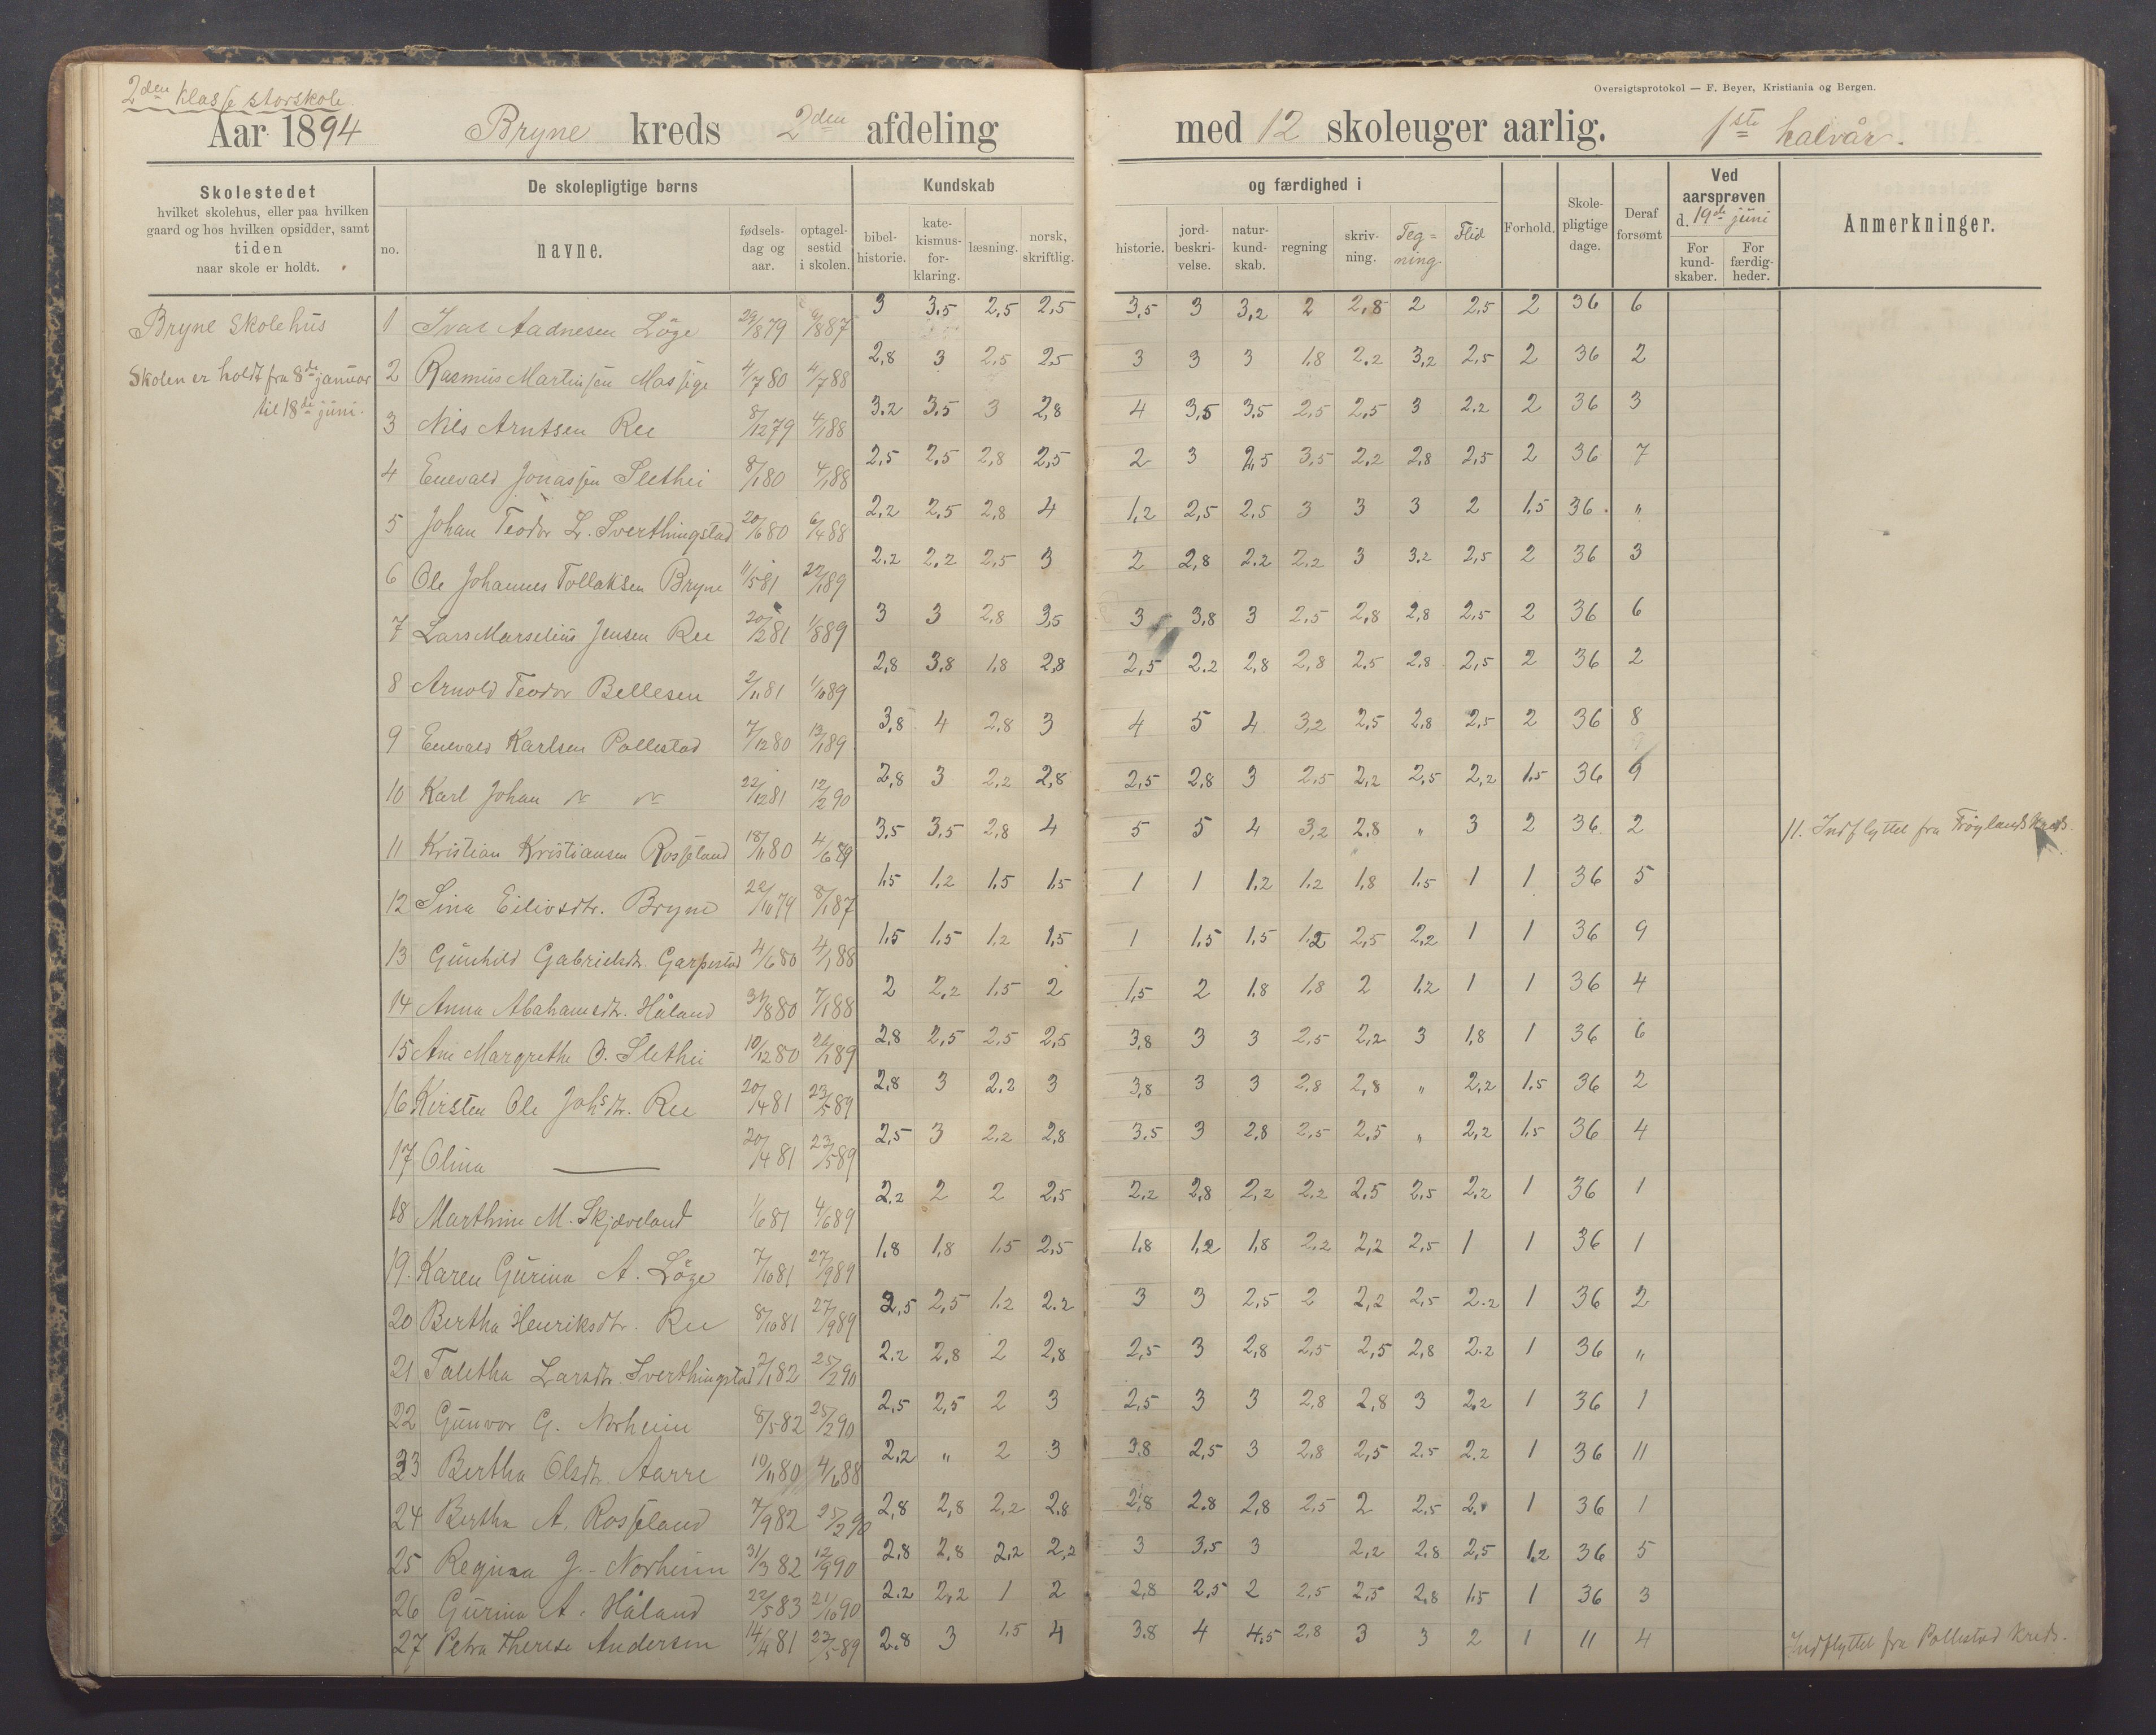 2den klasse storskole.
Oversigtsprotokol — F. Beyer, Kristiania og Bergen.
Aar 1894 Bryne kreds 2den afdeling med 12 skoleuger aarlig. 1ste halvår.
Skolestedet
hvilket skolehus, eller paa hvilken
gaard og hos hvilken opsidder, samt
tiden
naar skole er holdt.
De skolepligtige børns
no. navne. fødsels-dag og aar. optagel-sestid i skolen.
Kundskab og færdighed i
bibel-historie. kate-kismus-for-klaring. læsning. norsk, skriftlig. historie. jord-beskri-velse. natur-kund-skab. regning skriv-ning. Teg=ning. Flid
Forhold. Skole-pligtige dage. Deraf forsømt
Ved aarsprøven d. 19de juni
For kund-skaber. For færdig-heder.
Anmerkninger.
Bryne Skolehus
Skolen er holdt fra 8de januar
til 18de juni.
1 Ivar Aadnesen Löge 29/8 79 /8 87 3 3,5 2,5 2,5 3,5 3 3,2 2 2,8 2 2,5 2 36 6
2 Rasmus Martinsen Massige 4/7 80 4/7 88 2,8 3 2,5 2,5 3 3 3 1,8 2,2 3,2 2,5 2 36 2
3 Nils Arntsen Ree 8/12 79 4/1 88 3.2 3.5 3 2,8 4 3,5 3,5 2,5 2,5 3 2.2 2 36 3
4 Enevald Jonassen Slethei 8/1 80 4/1 88 2,5 2,5 2,8 2,5 2 3 2,5 3,5 2,2 2,8 2,5 2 36 7
5 Johan Teodor L. Sverthingstad 20/6 80 6/4 88 2.2 2,5 2,8 4 1,2 2,5 2,5 3 3 3 2 1.5 36 "
6 Ole Johannes Tollaksen Bryne 11/5 81 22/1 89 2.2 2,2 2,5 3 2 2,8 2.2 2,2 3 3,2 2,5 2 36 3
7 Lars Marselius Jensen Ree 20/2 81 1/8 89 3 3 2,8 3,5 3 3,8 3 2,5 2,8 2,8 2,5 2 36 6
8 Arnold Teodor Bellesen 2/11 81 1/10 89 2,8 3,8 1,8 2,8 2,5 2.2 2,8 2,8 2,5 2,8 2,5 2 36 2
9 Enevald Karlsen Pollestad 7/12 80 13/1 89 3,8 4 2,8 3 4 5 4 3,2 2,5 2,8 2,5 2 36 8
10 Karl Johan " " 22/12 81 12/2 90 2,8 3 2,2 2,8 2,5 2,8 3 2,5 2,2 2,5 2,2 1.5 36 9
11 Kristian Kristiansen Rosseland 18/11 80 4/6 89 3,5 3,5 2,8 4 5 5 4 3,2 2,8 " 3 2 36 2 11. Indflyttet fra Frøylands kreds.
12 Sina Eilivsdtr. Bryne 22/10 79 8/1 87 1,5 1,2 1,5 1,5 1 1 1,2 1,2 1,8 1,5 1 1 36 5
13 Gunhild Gabrielsdtr. Garpestad 4/6 80 4/1 88 1.5 1.5 1.2 1.5 1 1.5 1.5 1.2 2,5 2,2 1 1 36 9
14 Anna Abahamsdtr. Håland 31/8 80 7/1 88 2 2,2 1.5 2 1,5 2 1.8 1.8 2 1.2 1 1 36 4
15 Ane Margrethe O. Slethei 10/12 80 22/1 89 2,8 2,5 2,5 2,5 3,8 3 3 2,5 2,2 3 1,8 1 36 6
16 Kirsten Ole Johsdtr. Ree 20/4 81 23/5 89 2,8 3 2.2 3 3,8 3 3 2,8 2,8 " 2,2 1.5 36 2
17 Olina — 20/4 81 23/5 89 2,5 3 2,2 2,8 3.5 3 2,8 2,5 2,5 " 2,2 1.5 36 4
18 Marthine M. Skjæveland 1/6 81 4/6 89 2.2 2 2 2,5 2,2 2,8 2,2 2.2 2,5 2,5 2,2 1 36 1
19. Karen Gurina A. Löge 7/10 81 27/9 89 1.8 1,8 1.5 2,5 1.8 1.2 1,8 2.2 2,2 2,5 1 1 36 1
20 Bertha Henriksdtr. Ree 8/10 81 27/9 89 2,5 2,5 1.2 2.2 3 3 2,5 2 2,2 2,5 2.2 1 36 2
21 Talitha Larsdtr. Sverthingstad 2/1 82 25/2 90 2.2 2,8 2 2,8 2,5 3 2,8 2,5 2,5 2,8 2.2 1 36 "
22 Gunvor G. Norheim 8/5 82 25/2 90 2,5 2,5 2 3 2,5 3 3 2,8 2,8 3 2,2 1 36 1
23 Bertha Olsdtr. Aarre 10/11 80 4/6 88 2,2 " 2 3 3.8 2,5 3 2,8 2,5 2.5 2.2 1 36 11
24 Bertha A. Rosseland 7/9 82 25/2 90 2,8 2,8 2,2 2.8 2,8 2.8 2,8 2.5 2 2.5 2. 1 36 1
25 Regina G. Norheim 31/3 82 12/9 90 2.8 2,8 2,2 2,2 3 3,5 3 2,2 2.8 2,5 1.2 36 5
26 Gurina A. Håland 22/5 83 21/10 90 2.2 2,2 1 2 2,8 2.5 2 2,5 2,5 2,8 1.5 1 36 3
27 Petra Therese Andersen 14/4 81 22/5 89 2.8 3 1.5 4 3.8 4 4.5 2,8 3 3 2 1 11 4 Indflyttet fra Pollestad kreds.